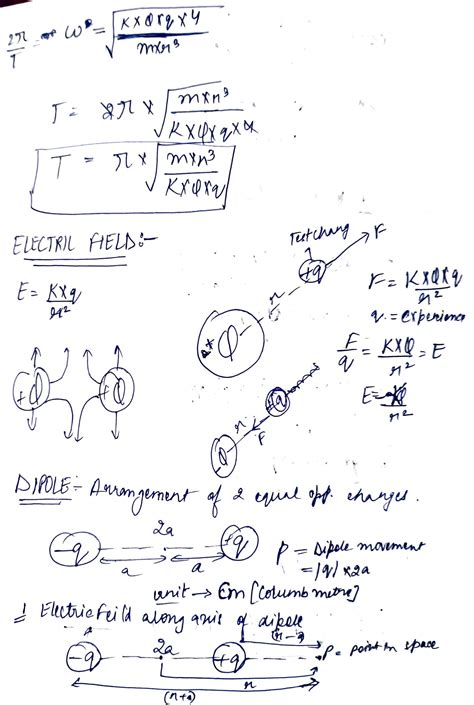 2π/T = ω = √(K×Q×q×4 / m×r³)
T = 2π × √(m×r³ / K×Q×q×4)
T = π × √(m×r³ / K×Q×q)
ELECTRIC FIELD:-
Test charge
+q
F
E = K×q / r²
r
F = K×Q×q / r²
q = experience
Q
F/q = K×Q / r² = E
+Q +Q
+q
E = KQ / r²
r
F
-Q
DIPOLE:- Arrangement of 2 equal opp. charges.
-q 2a +q
a a
P = Dipole movement
= |q| × 2a
unit → Cm [Columb metre]
Electric Feild along axis of dipole
(r-a)
-q 2a +q P = point in space
r
(r+a)